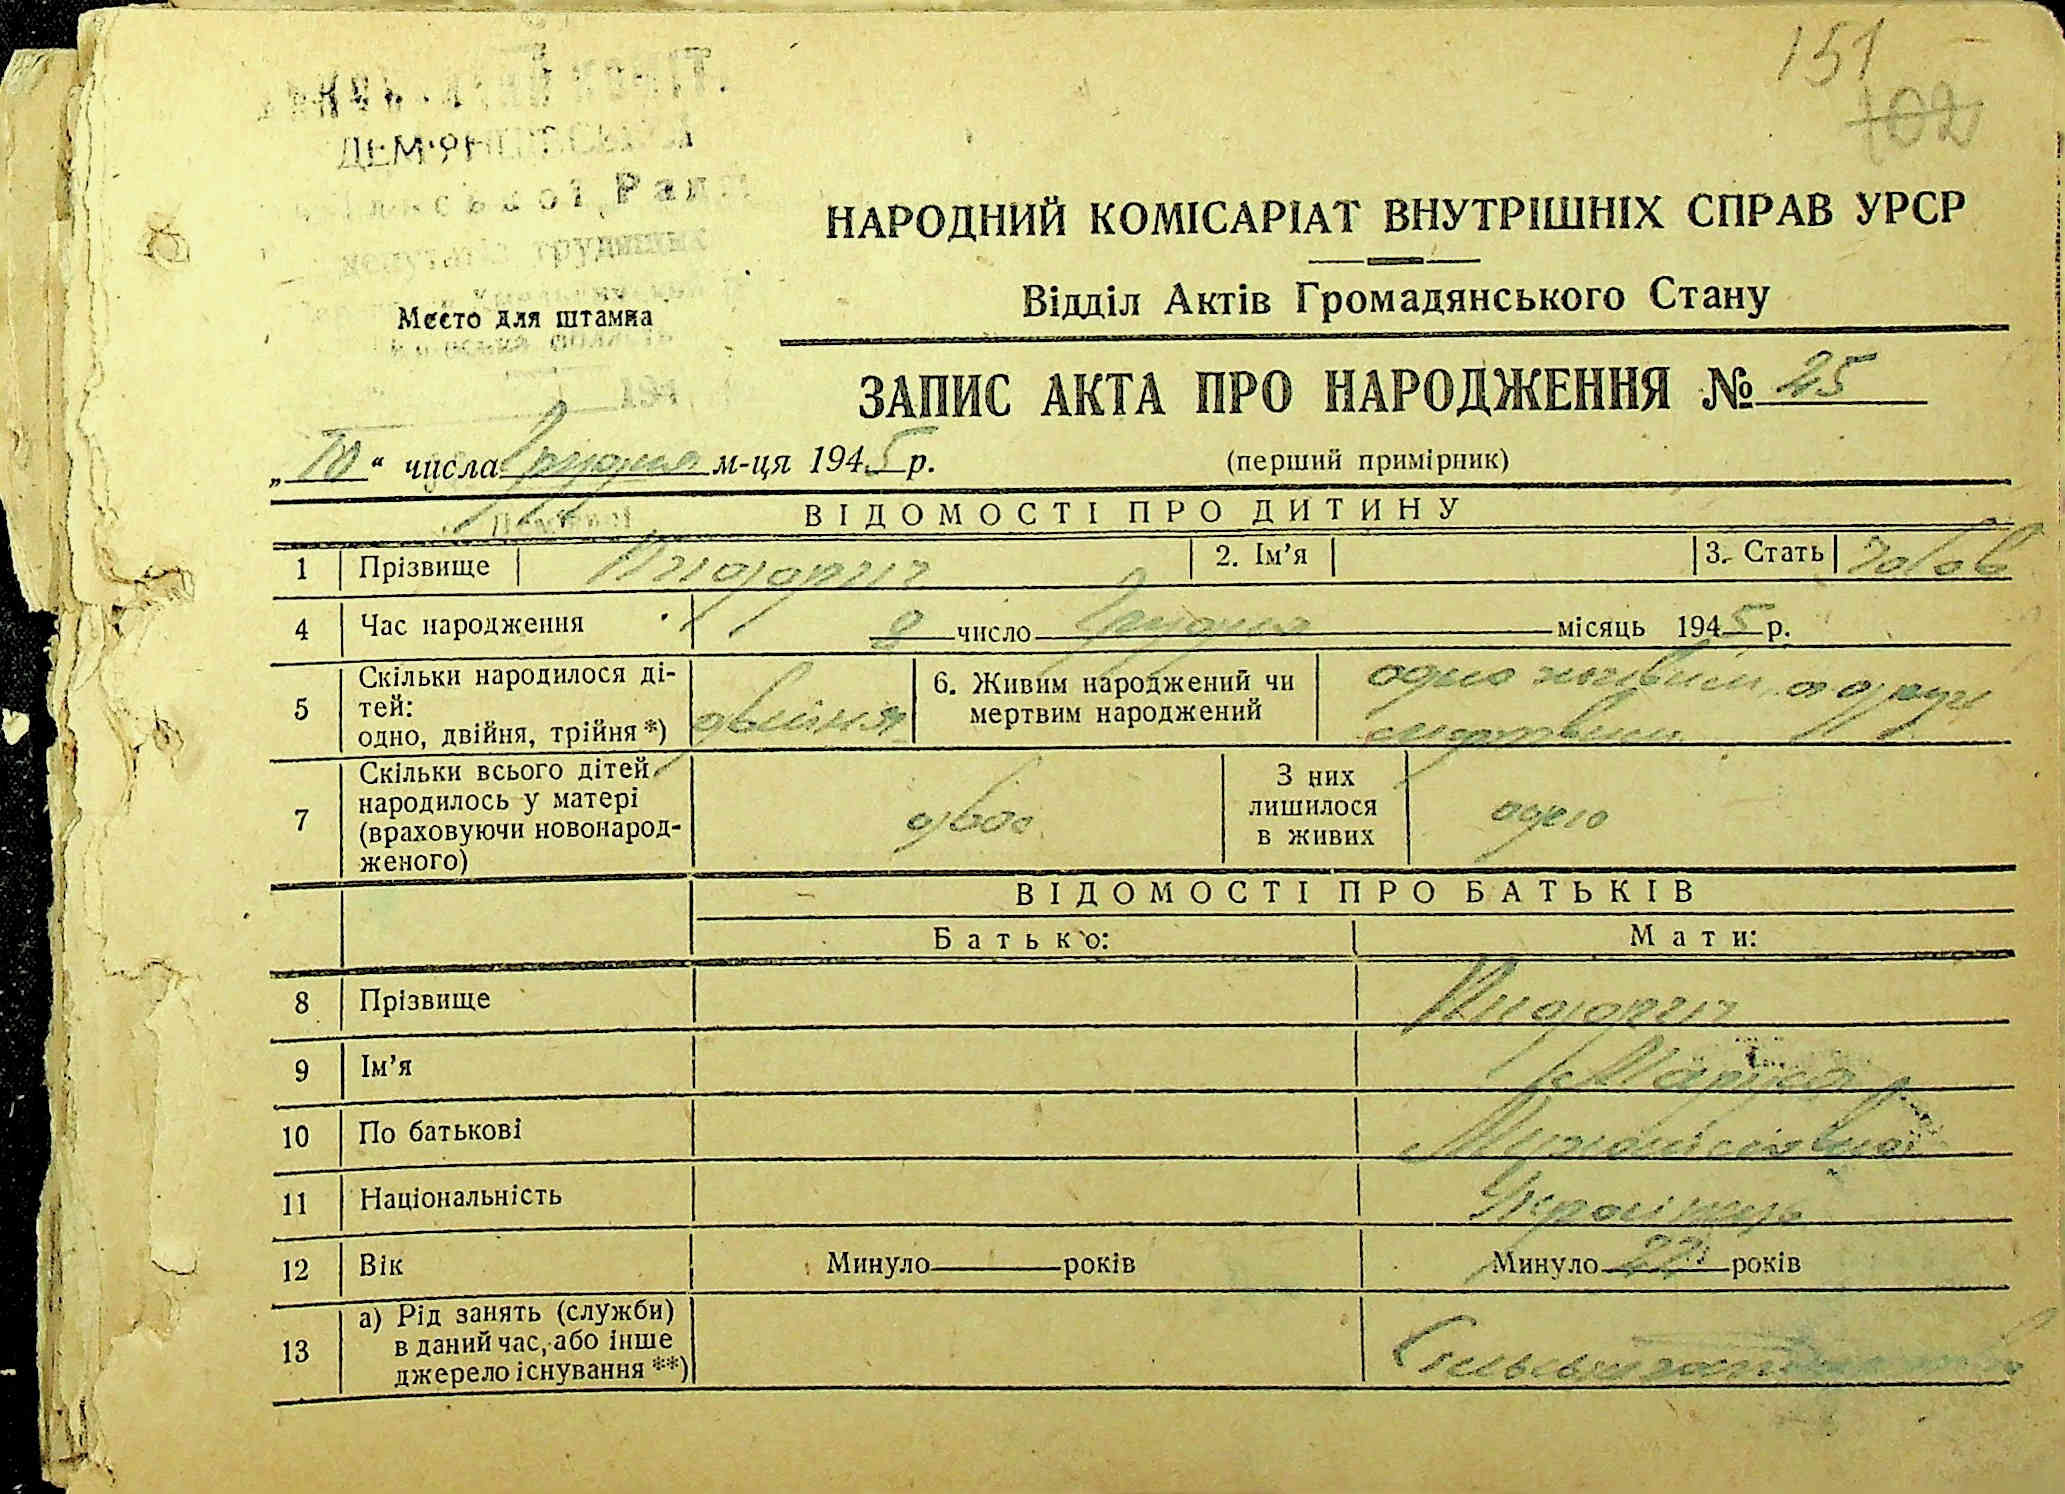 151
102
ДЕМ'ЯН
Рад
трудящих
Место для штампа
194
НАРОДНИЙ КОМІСАРІАТ ВНУТРІШНІХ СПРАВ УРСР
Відділ Актів Громадянського Стану
ЗАПИС АКТА ПРО НАРОДЖЕННЯ № 25
„10“ числа Грудня м-ця 1945 р.
(перший примірник)
ВІДОМОСТІ ПРО ДИТИНУ
1 Прізвище 2. Ім'я 3. Стать чолов
4 Час народження 8 число Грудня місяць 1945 р.
5 Скільки народилося ді-
тей:
одно, двійня, трійня *) двійня
6. Живим народжений чи
мертвим народжений
одно живим, а друге
мертвим
7 Скільки всього дітей
народилось у матері
(враховуючи новонарод-
женого)
двоє
З них
лишилося
в живих
одно
ВІДОМОСТІ ПРО БАТЬКІВ
Батько: Мати:
8 Прізвище
9 Ім'я Марія
10 По батькові Михайлівна
11 Національність Українка
12 Вік Минуло років Минуло 22 років
13 а) Рід занять (служби)
в даний час, або інше
джерело існування **)